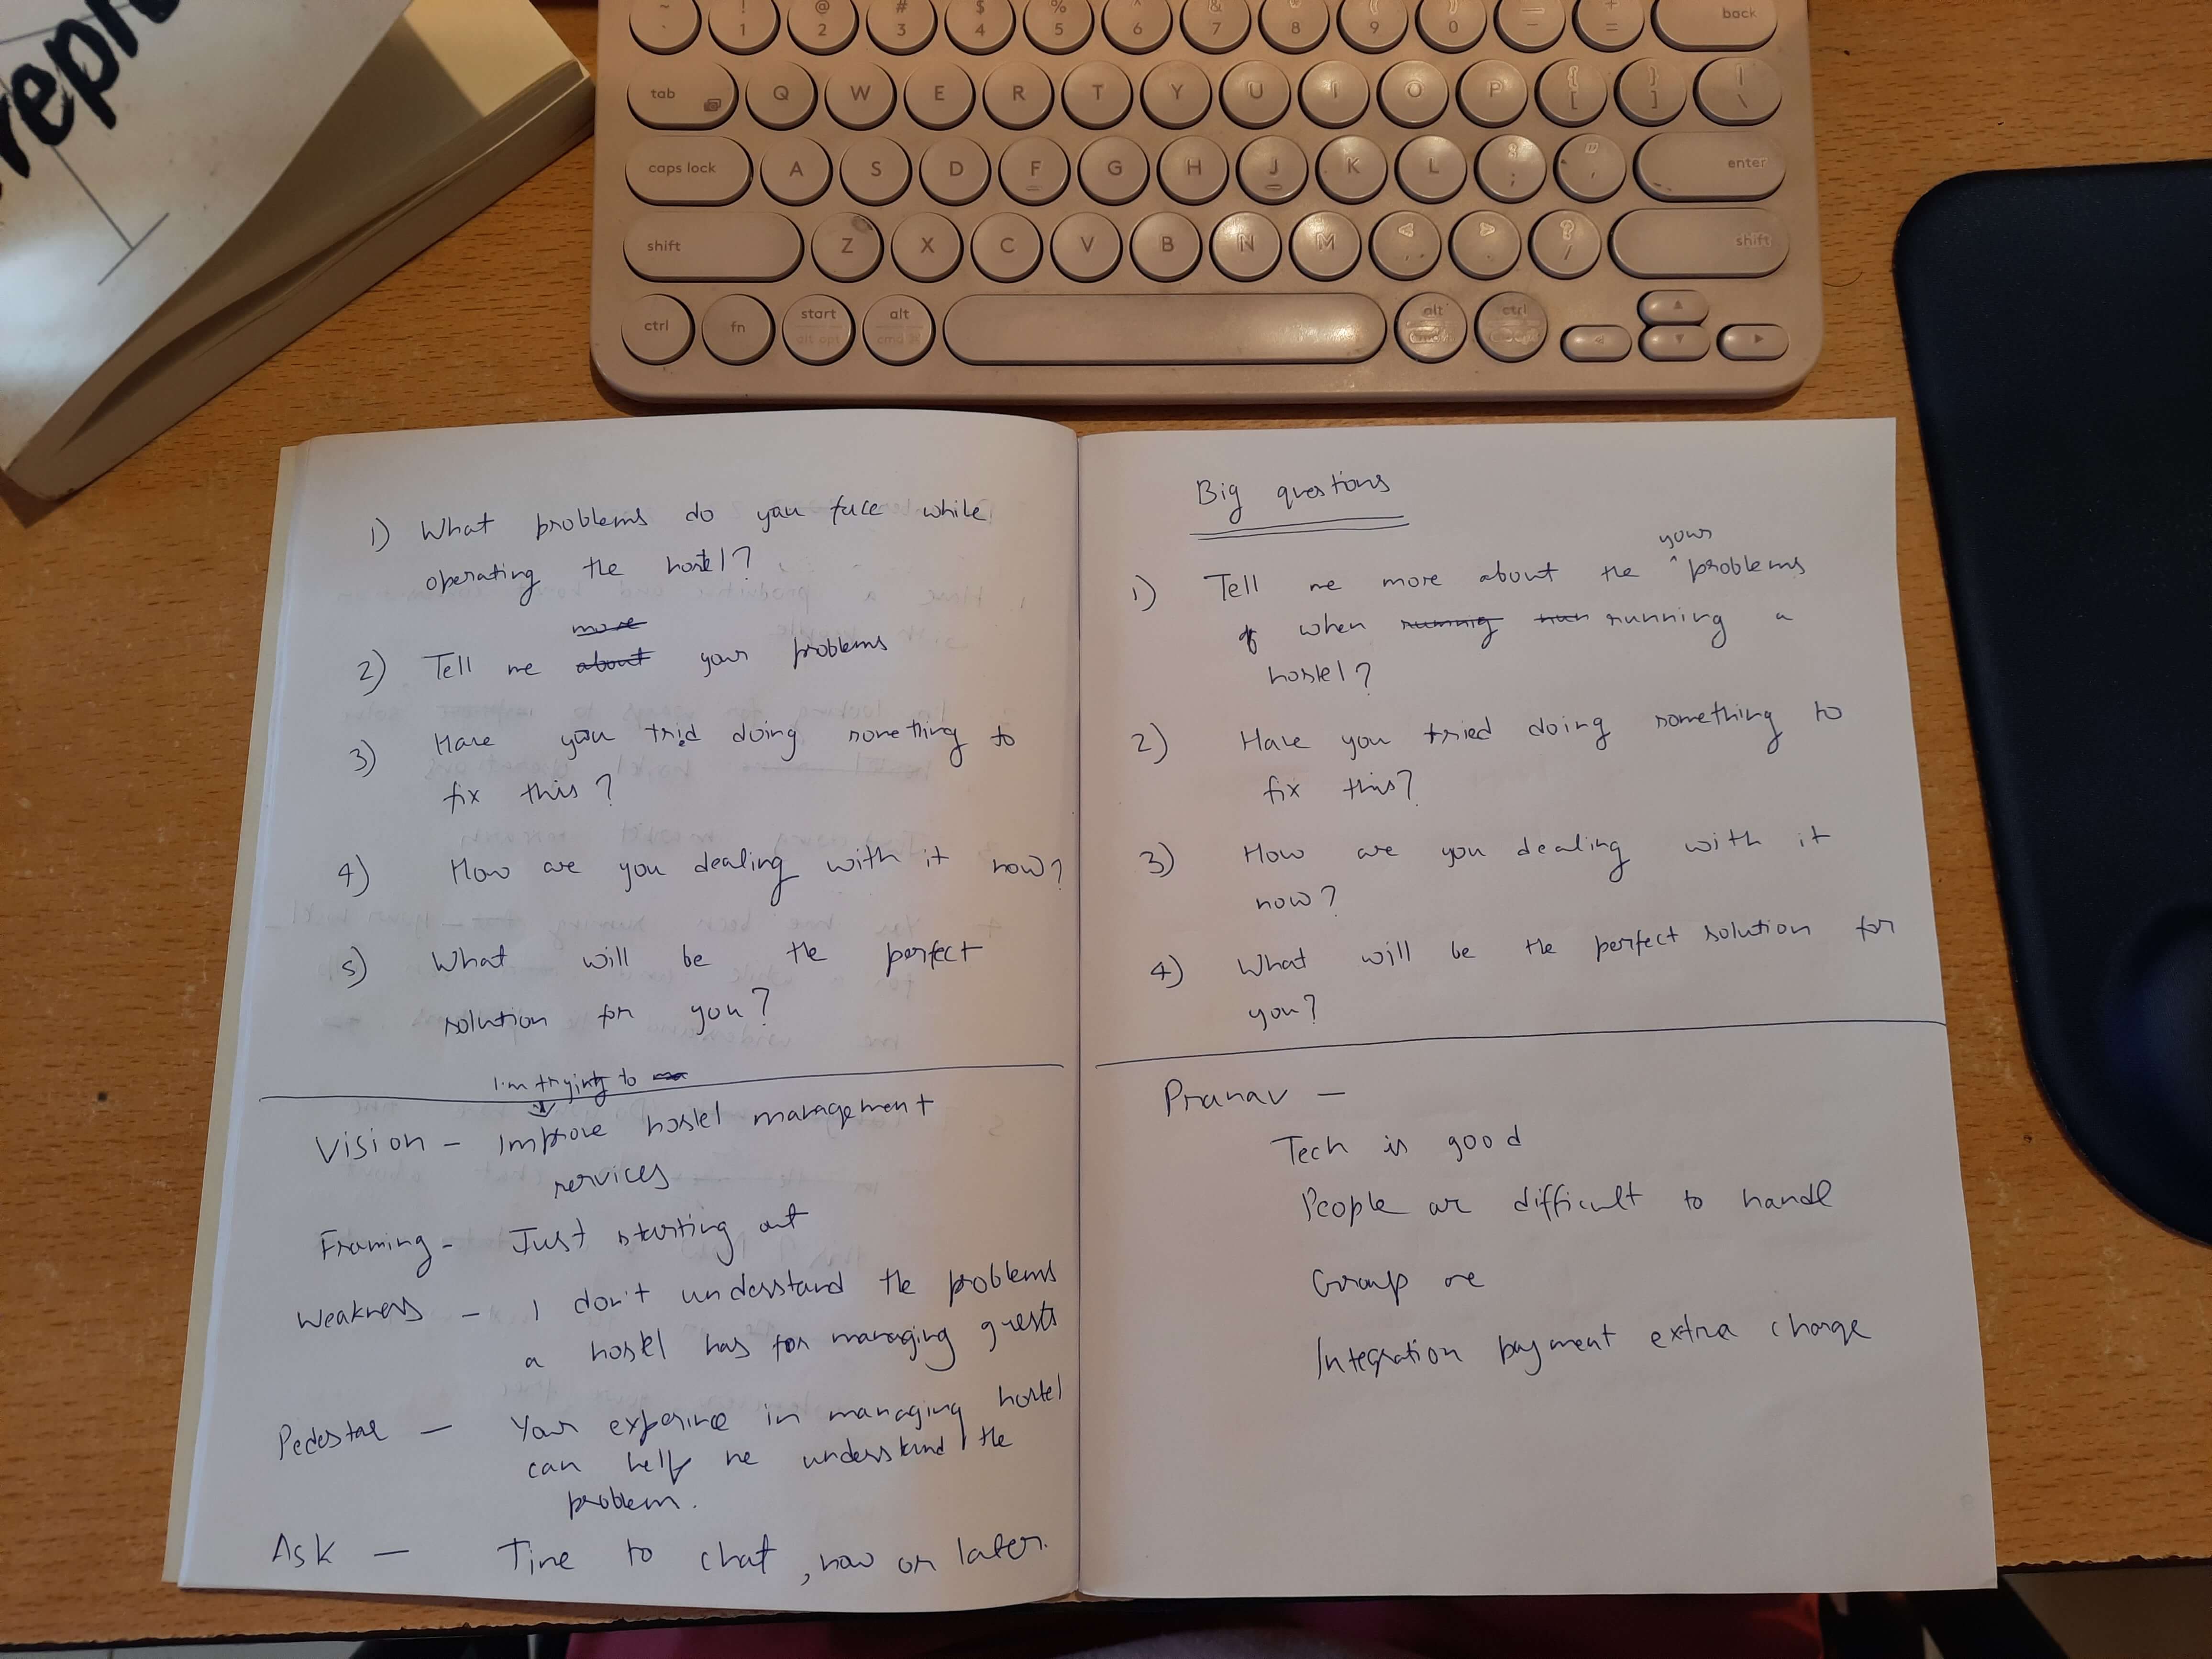 ~ ! @ # $ % ^ & * ( ) — +
` 1 2 3 4 5 6 7 8 9 0 - = back
tab Q W E R T Y U I O P { [ } ] | \
caps lock A S D F G H J K L : ; " ' enter
shift Z X C V B N M < , > . ? / shift
ctrl fn start alt alt ctrl
alt opt cmd
1) What problems do you face while
operating the hostel?
more
2) Tell me about your problems
3) Have you tried doing something to
fix this?
4) How are you dealing with it now?
5) What will be the perfect
solution for you?
I'm trying to
Vision - Improve hostel management
services
Framing - Just starting out
Weakness - I don't understand the problems
a hostel has for managing guests
Pedestal - Your experince in managing hostel
can help me understand the
problem.
Ask - Time to chat, now or later.
Big questions
your
1) Tell me more about the ^ problems
when runnig run running a
hostel?
2) Have you tried doing something to
fix this?
3) How are you dealing with it
now?
4) What will be the perfect solution for
you?
Pranav -
Tech is good
People are difficult to handle
Group are
Integration payment extra charge